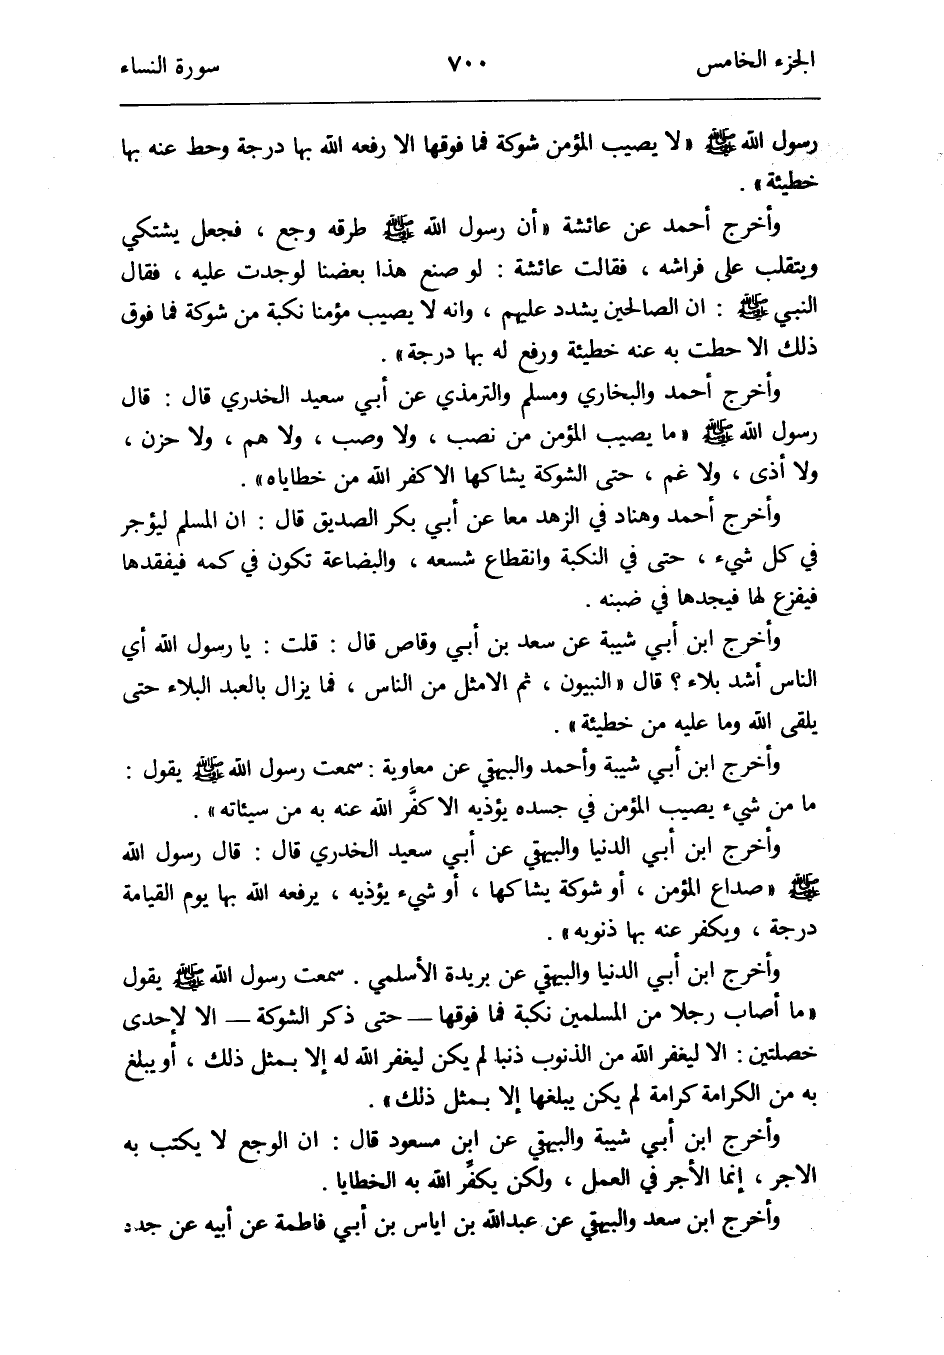 الجزء الخامس ٧٠٠ سورة النساء
رسول الله ﷺ «لا يصيب المؤمن شوكة فما فوقها الا رفعه الله بها درجة وحط عنه بها
خطيئة» .
وأخرج أحمد عن عائشة «أن رسول الله ﷺ طرقه وجع ، فجعل يشتكي
ويتقلب على فراشه ، فقالت عائشة : لو صنع هذا بعضنا لوجدت عليه ، فقال
النبي ﷺ : ان الصالحين يشدد عليهم ، وانه لا يصيب مؤمنا نكبة من شوكة فما فوق
ذلك الا حطت به عنه خطيئة ورفع له بها درجة» .
وأخرج أحمد والبخاري ومسلم والترمذي عن أبي سعيد الخدري قال : قال
رسول الله ﷺ «ما يصيب المؤمن من نصب ، ولا وصب ، ولا هم ، ولا حزن ،
ولا أذى ، ولا غم ، حتى الشوكة يشاكها الا كفر الله من خطاياه» .
وأخرج أحمد وهناد في الزهد معا عن أبي بكر الصديق قال : ان المسلم ليؤجر
في كل شيء ، حتى في النكبة وانقطاع شسعه ، والبضاعة تكون في كمه فيفقدها
فيفزع لها فيجدها في ضبنه .
وأخرج ابن أبي شيبة عن سعد بن أبي وقاص قال : قلت : يا رسول الله أي
الناس أشد بلاء ؟ قال «النبيون ، ثم الامثل من الناس ، فما يزال بالعبد البلاء حتى
يلقى الله وما عليه من خطيئة» .
وأخرج ابن أبي شيبة وأحمد والبيهقي عن معاوية : سمعت رسول الله ﷺ يقول :
ما من شيء يصيب المؤمن في جسده يؤذيه الا كفَّر الله عنه به من سيئاته» .
وأخرج ابن أبي الدنيا والبيهقي عن أبي سعيد الخدري قال : قال رسول الله
ﷺ «صداع المؤمن ، أو شوكة يشاكها ، أو شيء يؤذيه ، يرفعه الله بها يوم القيامة
درجة ، ويكفر عنه بها ذنوبه» .
وأخرج ابن أبي الدنيا والبيهقي عن بريدة الأسلمي . سمعت رسول الله ﷺ يقول
«ما أصاب رجلا من المسلمين نكبة فما فوقها — حتى ذكر الشوكة — الا لإحدى
خصلتين : الا ليغفر الله من الذنوب ذنبا لم يكن ليغفر الله له إلا بمثل ذلك ، أو يبلغ
به من الكرامة كرامة لم يكن يبلغها إلا بمثل ذلك» .
وأخرج ابن أبي شيبة والبيهقي عن ابن مسعود قال : ان الوجع لا يكتب به
الاجر ، إنما الأجر في العمل ، ولكن يكفِّر الله به الخطايا .
وأخرج ابن سعد والبيهقي عن عبدالله بن اياس بن أبي فاطمة عن أبيه عن جده